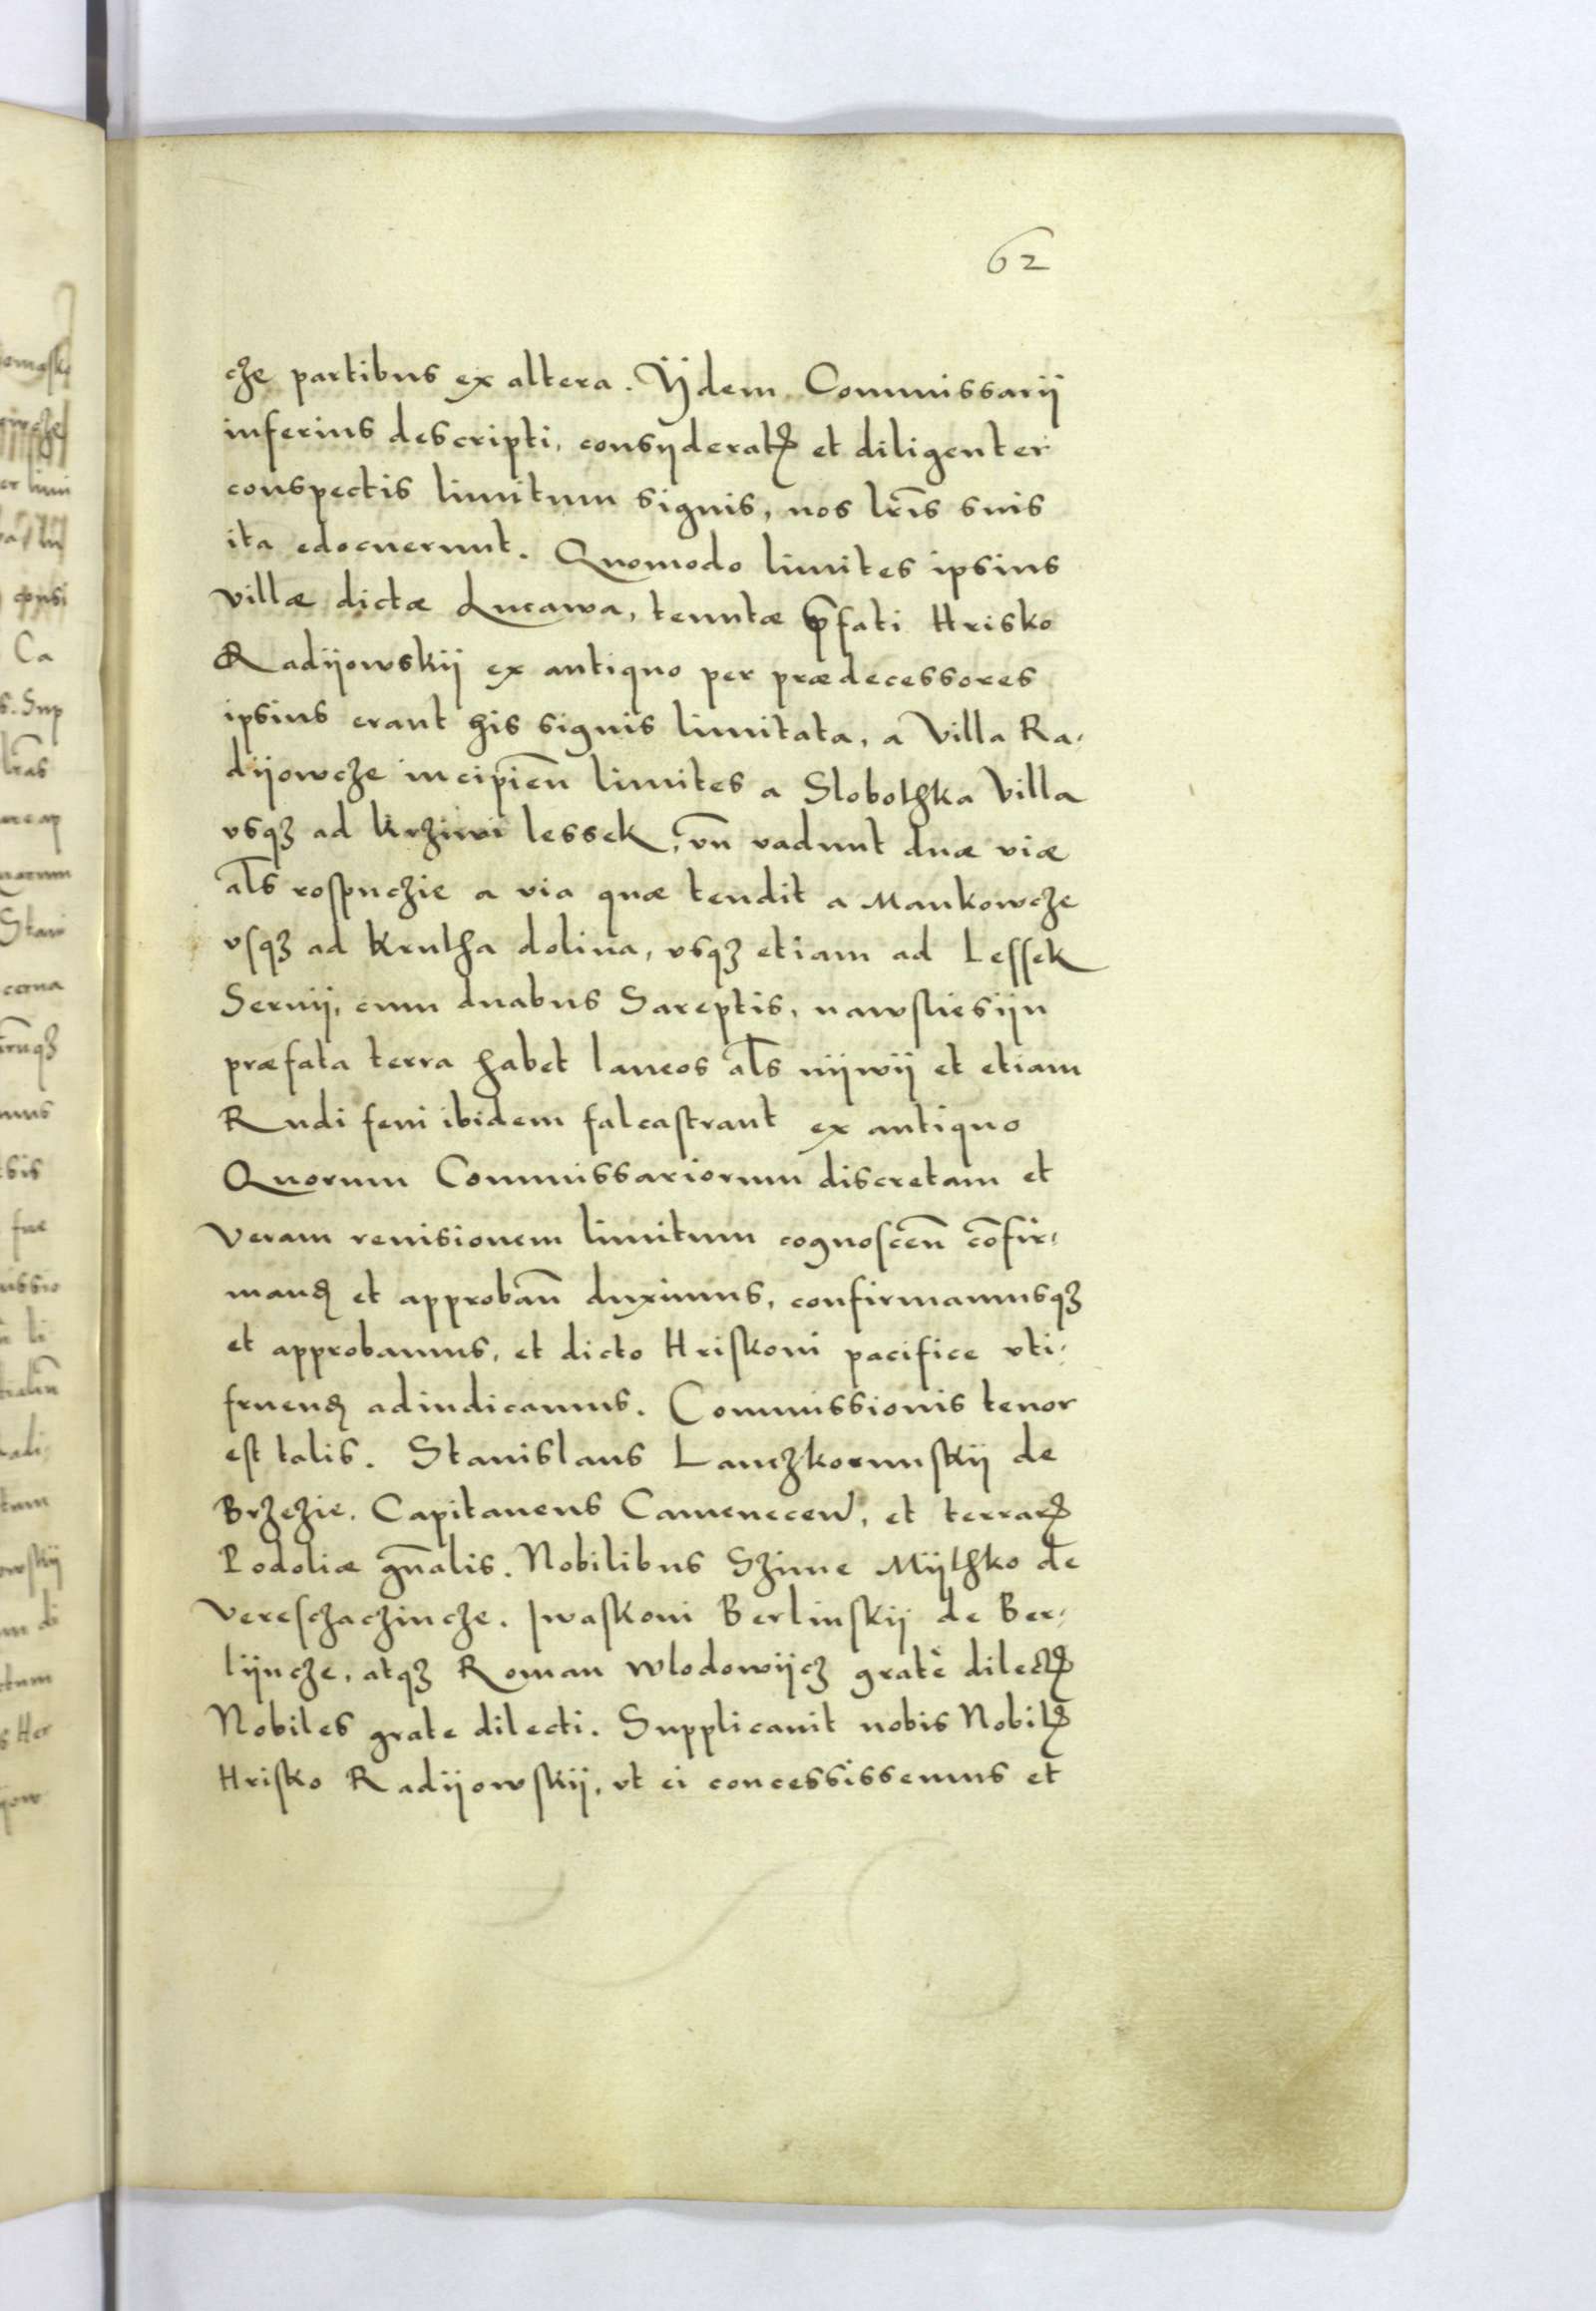 62
cze partibus ex altera. Yidem Commissarij
inferius descripti, consyderatꝭ et diligenter
conspectis limitum signis, nos lr̄is suis
ita edocuerunt. Quomodo limites ipsius
villæ dictæ Lucawa, tentutæ p̄fati Hrisko
Radijowskij ex antiquo per prædecessores
ipsius erant his signis limitata, a Villa Ra,
dijowcze incipien̄ limites a Slobothka Villa
vsqꝫ ad krziwi lessek, vn̄ vadunt duæ viæ
al̄s rospuczie a via quæ tendit a Mankowcze
vsqꝫ ad Krutha dolina, vsqꝫ etiam ad Lessek
Seruij, cum duabus Sareptis, nawsliesijn
præfata terra habet laneos al̄s nijwij et etiam
Rudi feni ibidem falcastrant ex antiquo
Quorum Commissariorum discretam et
Veram reuisionem limitum cognoscen̄ cōfir,
mand̄ et approban̄ duximus, confirmamusqꝫ
et approbamus, et dicto Hriskoni pacifice vti,
fruend̄ adiudicamus. Commissionis tenor
est talis. Stanislaus Lanczkorunskij de
Brzezie. Capitaneus Camenecen̄, et terrarꝭ
Podoliæ gn̄alis. Nobilibus Szime Mijthko de
Vereschaczincze. Iwaskoni Berlinskij de Ber,
lijncze, atqꝫ Roman Wlodowijcz gratè dilectꝭ
Nobiles grate dilecti. Supplicauit nobis Nobilꝭ
Hrisko Radijowskij, vt ei concessissemus et